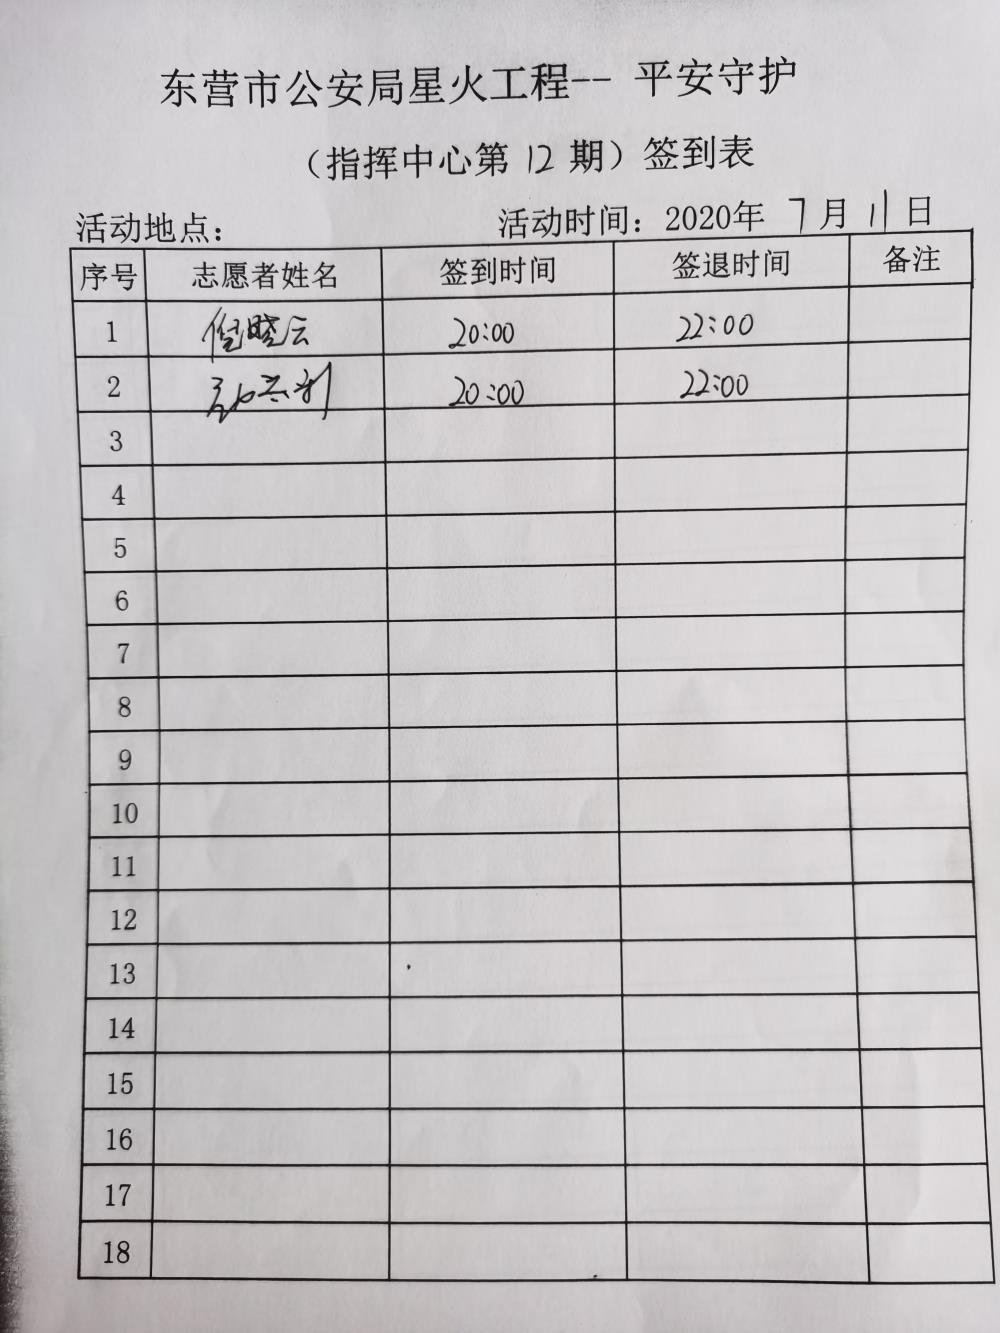 东营市公安局星火工程-- 平安守护
（指挥中心第 12 期）签到表
活动地点： 活动时间：2020年 7 月 11 日
序号 志愿者姓名 签到时间 签退时间 备注
1 晓云 20:00 22:00
2 20:00 22:00
3
4
5
6
7
8
9
10
11
12
13
14
15
16
17
18